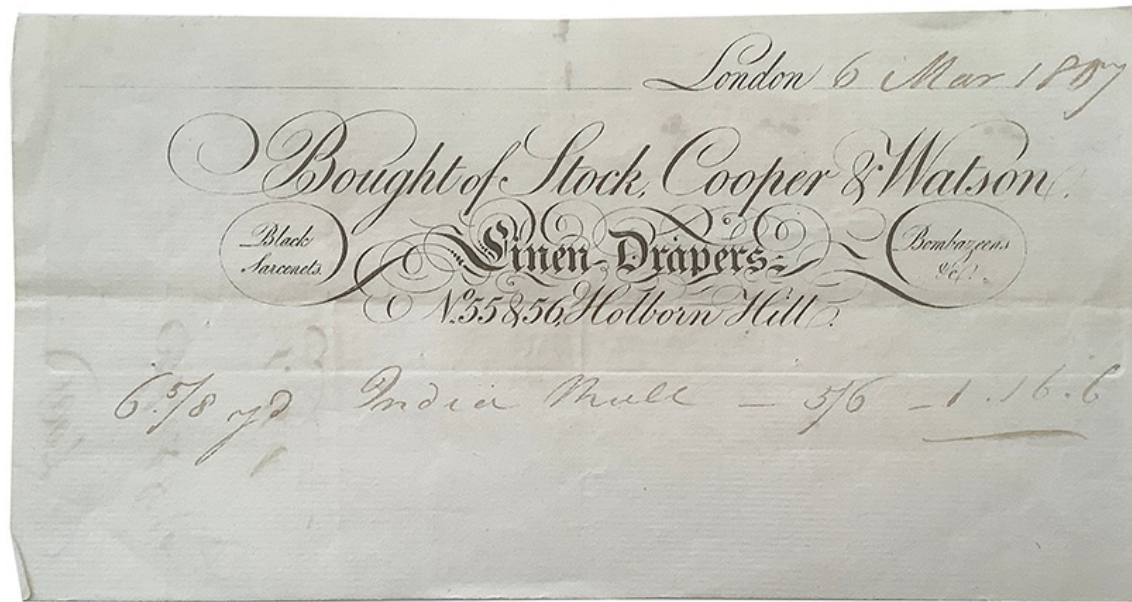 London 6 Mar 1807
Bought of Stock, Cooper & Watson.
Black
Sarconets.
Linen-Drapers
Bombazeens
&c.
No. 55 & 56, Holborn Hill.
6 5/8 yd India Mull — 5/6 — 1.16.6